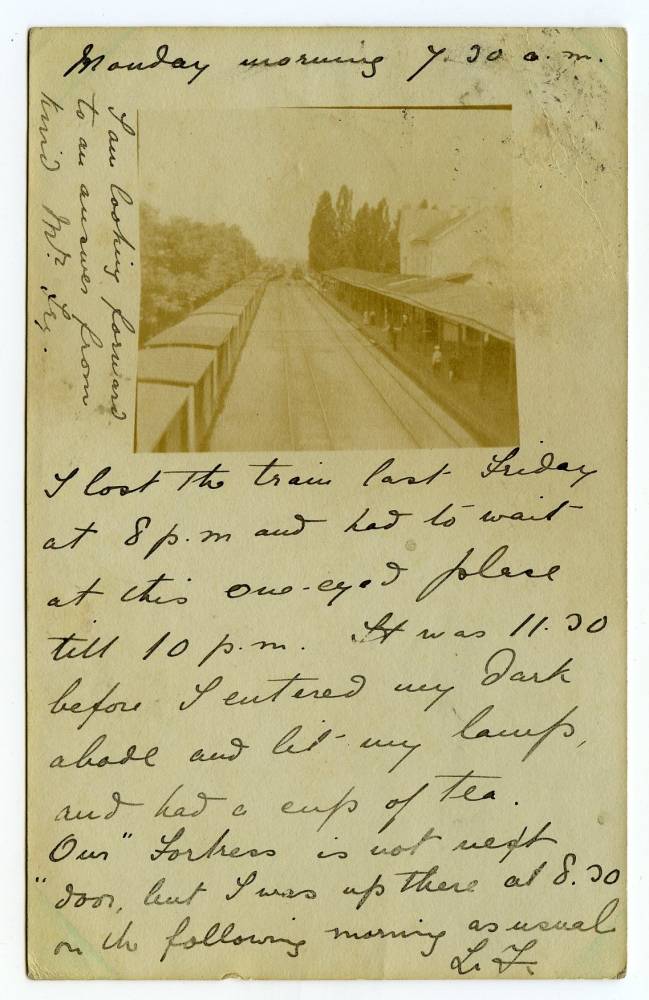 Monday morning 7.30 a.m.
I am looking forward
to an answer from
kind Mr. Fry.
I lost the train last Friday
at 8 p.m and had to wait
at this one-eyed place
till 10 p.m. It was 11.30
before I entered my dark
abode and lit my lamp,
and had a cup of tea.
Our "Fortress is not next
"door, but I was up there at 8.30
on the following morning as usual
L. F.